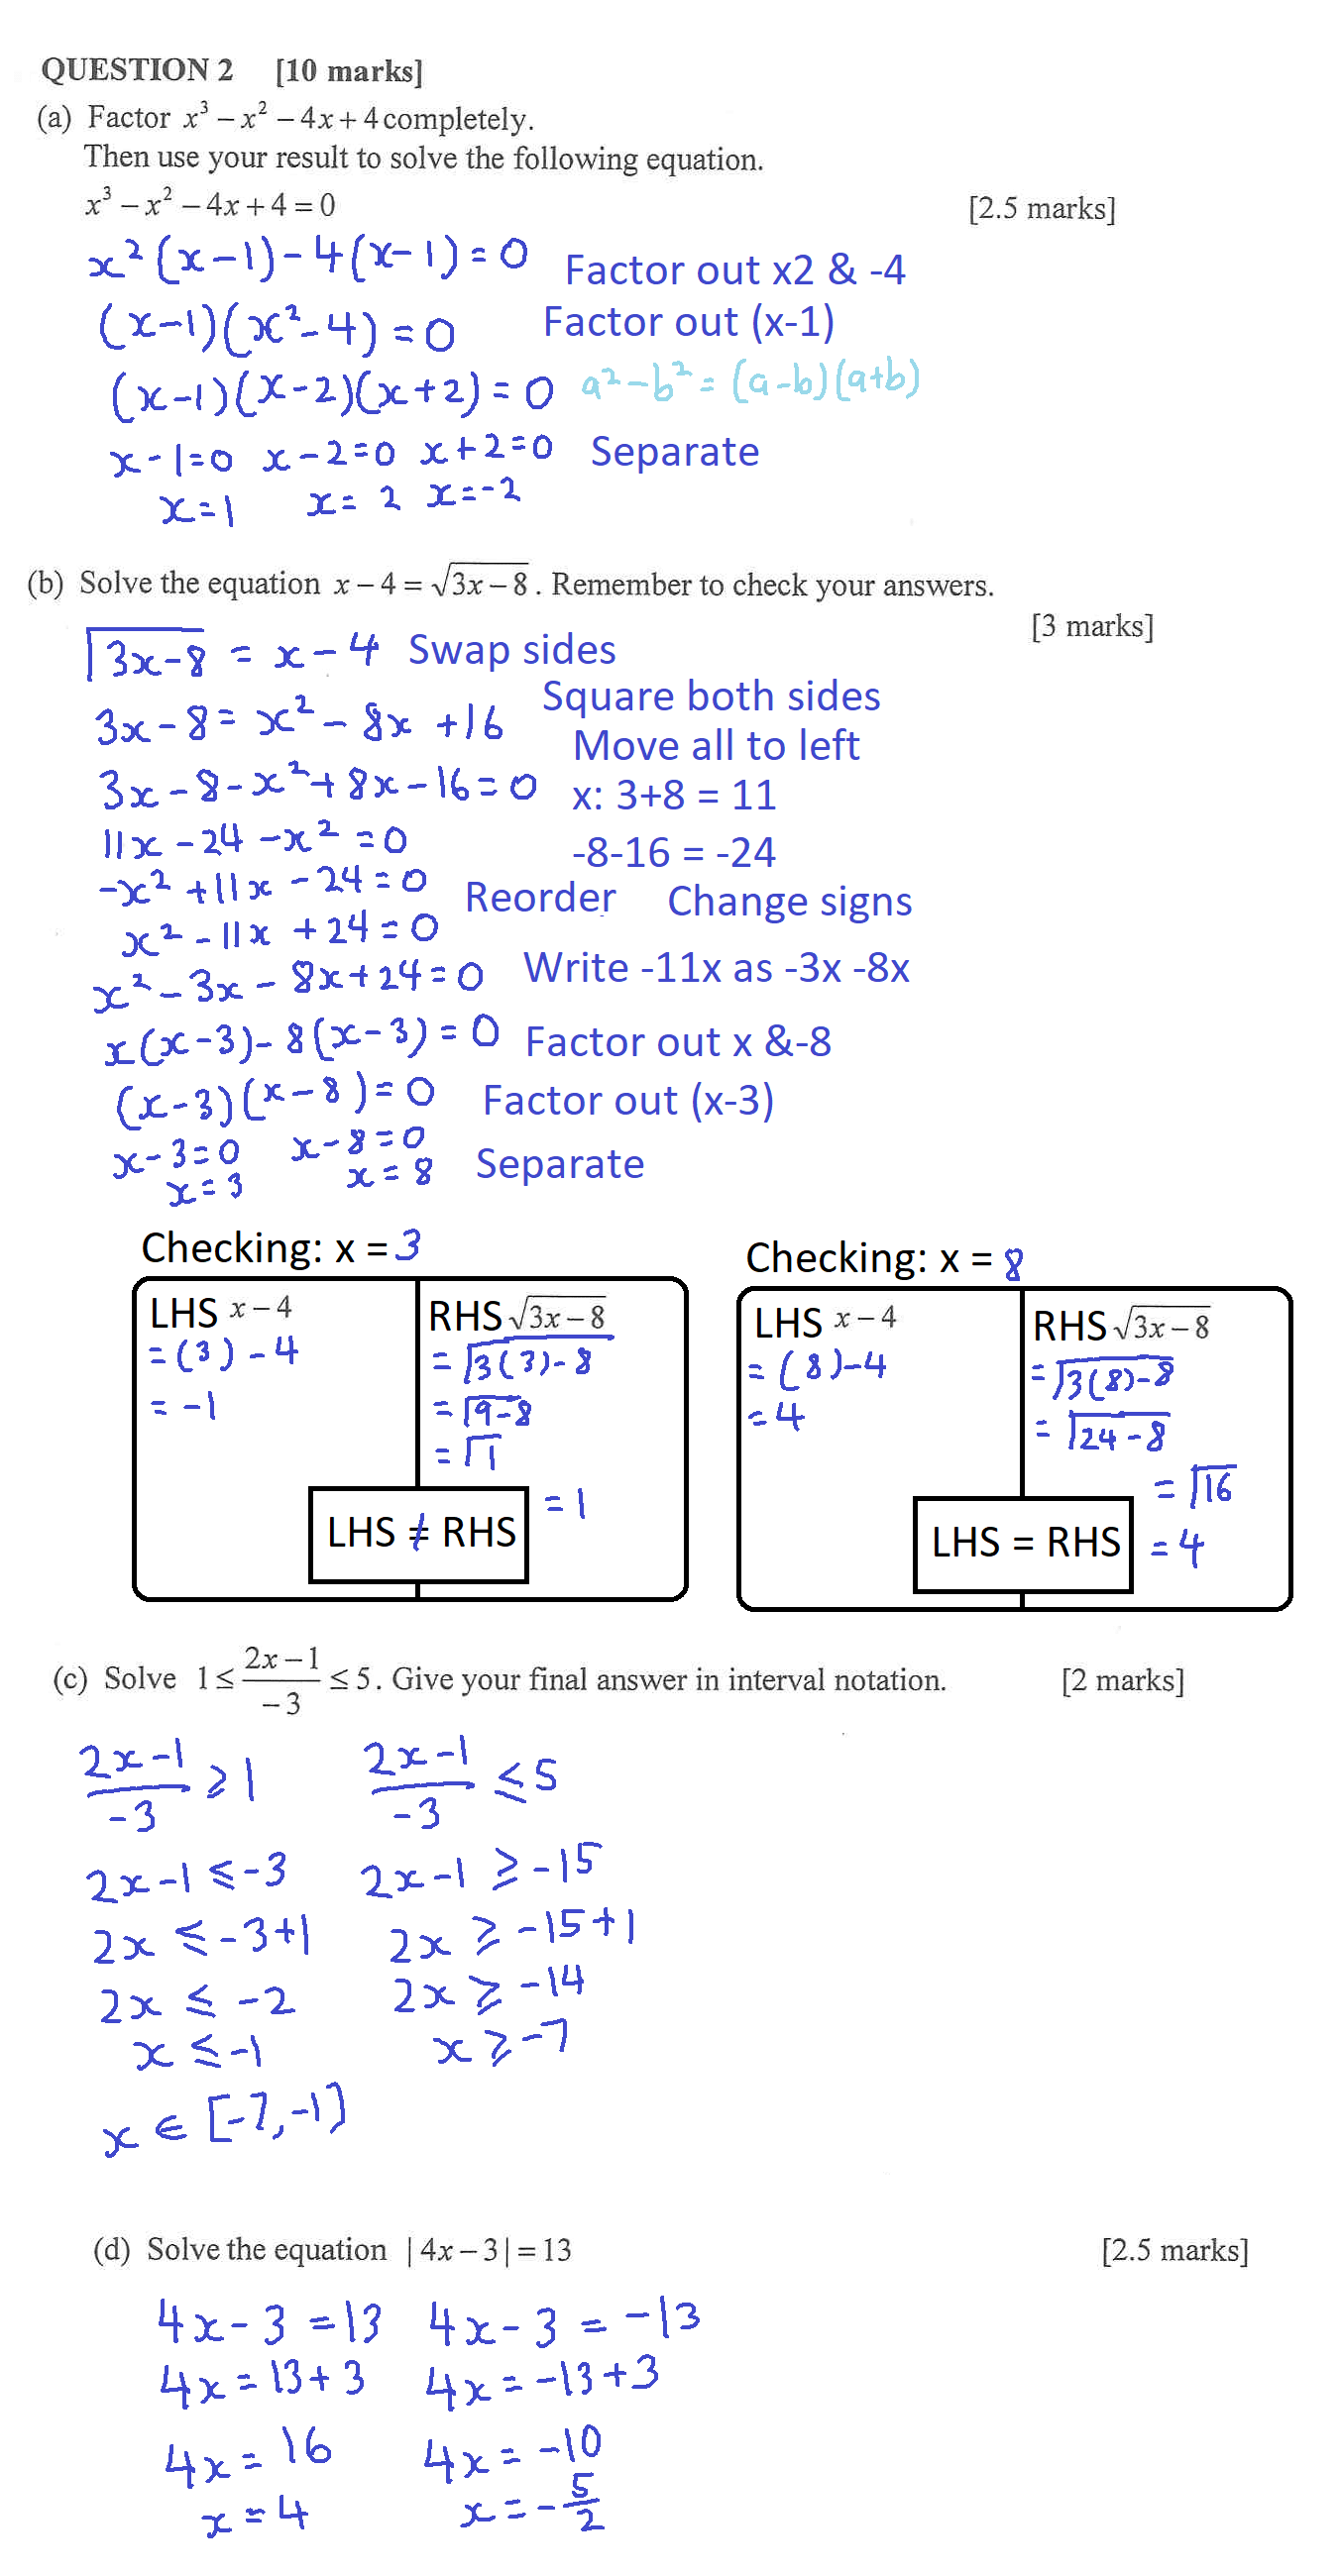 QUESTION 2 [10 marks]
(a) Factor x³ – x² – 4x + 4 completely.
Then use your result to solve the following equation.
x³ – x² – 4x + 4 = 0 [2.5 marks]
x²(x-1)-4(x-1)=0 Factor out x2 & -4
(x-1)(x²-4)=0 Factor out (x-1)
(x-1)(x-2)(x+2)=0 a²-b²=(a-b)(a+b)
x-1=0 x-2=0 x+2=0 Separate
x=1 x=2 x=-2
(b) Solve the equation x – 4 = √(3x – 8) . Remember to check your answers.
[3 marks]
√(3x-8) = x-4 Swap sides
Square both sides
3x-8=x²-8x+16
Move all to left
3x-8-x²+8x-16=0 x: 3+8 = 11
11x-24-x²=0 -8-16 = -24
-x²+11x-24=0 Reorder Change signs
x²-11x+24=0
x²-3x-8x+24=0 Write -11x as -3x -8x
x(x-3)-8(x-3)=0 Factor out x &-8
(x-3)(x-8)=0 Factor out (x-3)
x-3=0 x-8=0
x=3 x=8 Separate
Checking: x = 3
LHS x – 4 RHS √(3x – 8)
=(3)-4 =√(3(3)-8)
=-1 =√(9-8)
=√1
=1
LHS ≠ RHS
Checking: x = 8
LHS x – 4 RHS √(3x – 8)
=(8)-4 =√(3(8)-8)
=4 =√(24-8)
=√16
LHS = RHS =4
(c) Solve 1 ≤ (2x – 1)/(–3) ≤ 5 . Give your final answer in interval notation. [2 marks]
(2x-1)/(-3) ≥ 1 (2x-1)/(-3) ≤ 5
2x-1 ≤ -3 2x-1 ≥ -15
2x ≤ -3+1 2x ≥ -15+1
2x ≤ -2 2x ≥ -14
x ≤ -1 x ≥ -7
x ∈ [-7,-1]
(d) Solve the equation | 4x – 3 | = 13 [2.5 marks]
4x-3=13 4x-3=-13
4x=13+3 4x=-13+3
4x=16 4x=-10
x=4 x=-5/2